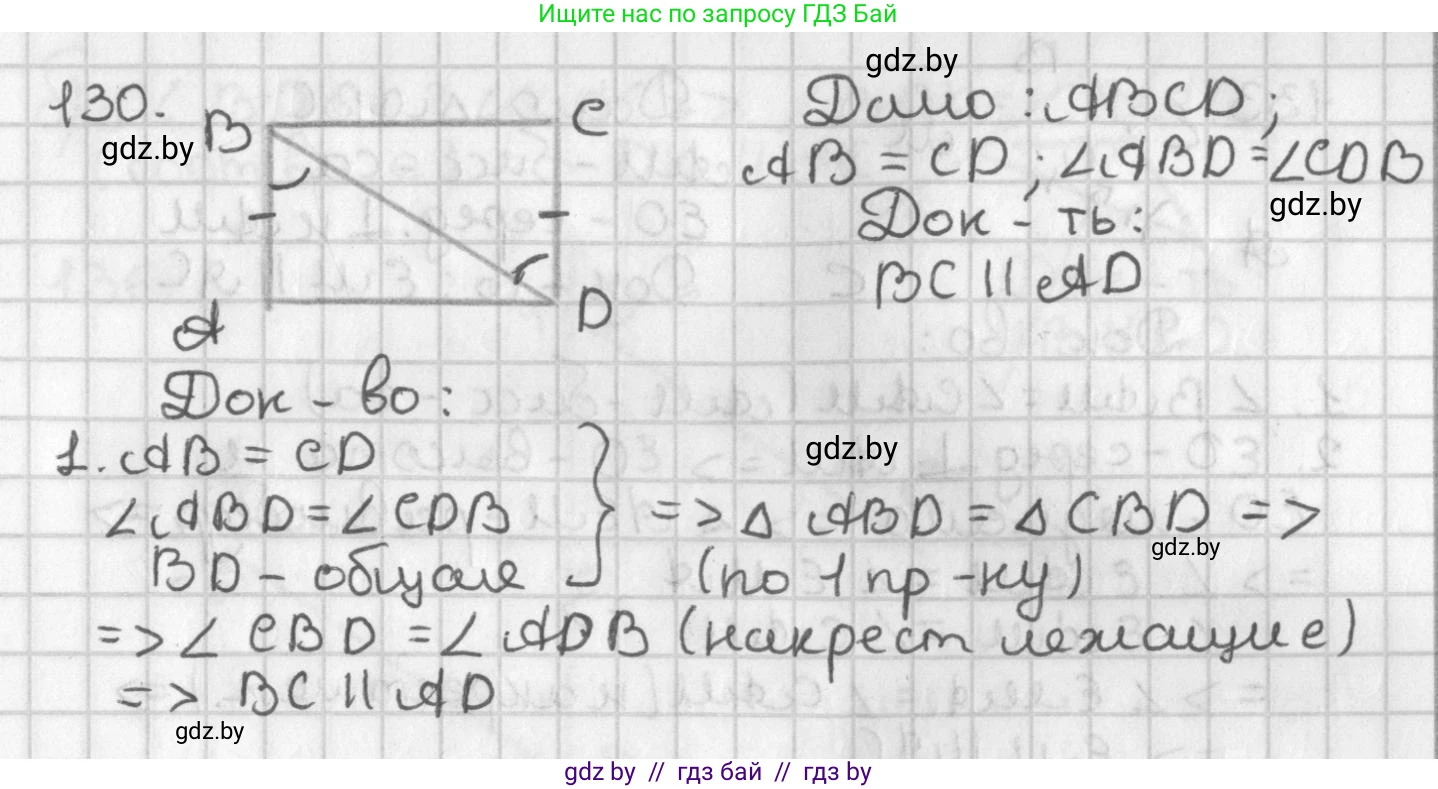 Ищите нас по запросу ГДЗ Бай
gdz.by
130.
gdz.by
B
C
A
D
Дано: ABCD;
AB = CD; ∠ABD = ∠CDB
gdz.by
Док - ть:
BC || AD
Док - во:
1. AB = CD
gdz.by
∠ABD = ∠CDB } => △ ABD = △ CBD =>
gdz.by
BD - общая (по 1 пр - ку)
=> ∠ CBD = ∠ ADB (накрест лежащие)
=> BC || AD
gdz.by
gdz by // гдз бай // гдз by